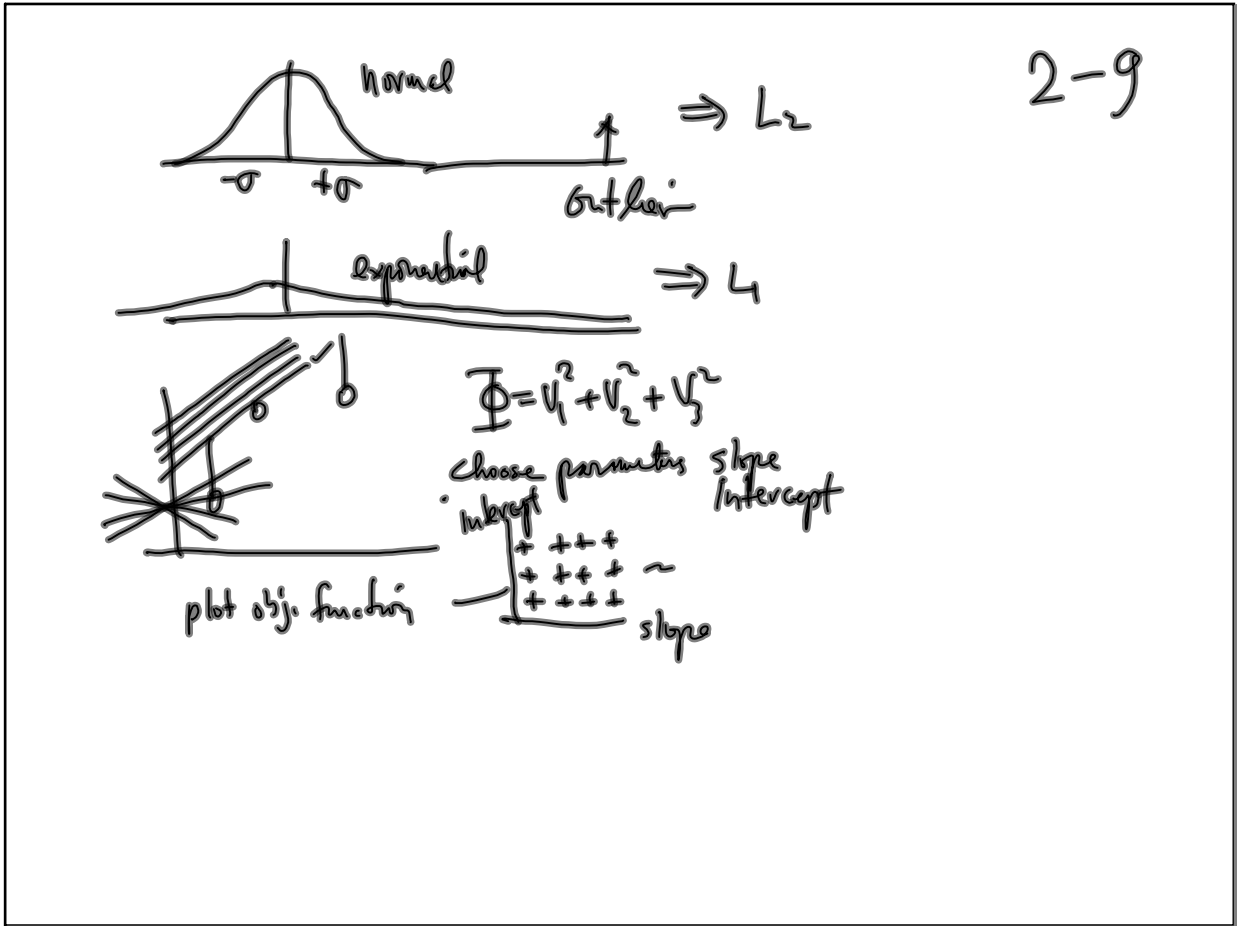 2-9
normal
⇒ L₂
-σ +σ
outlier
exponential ⇒ L₁
Φ = V₁² + V₂² + V₃²
choose parameters slope
intercept
intercept
plot obj. function
slope